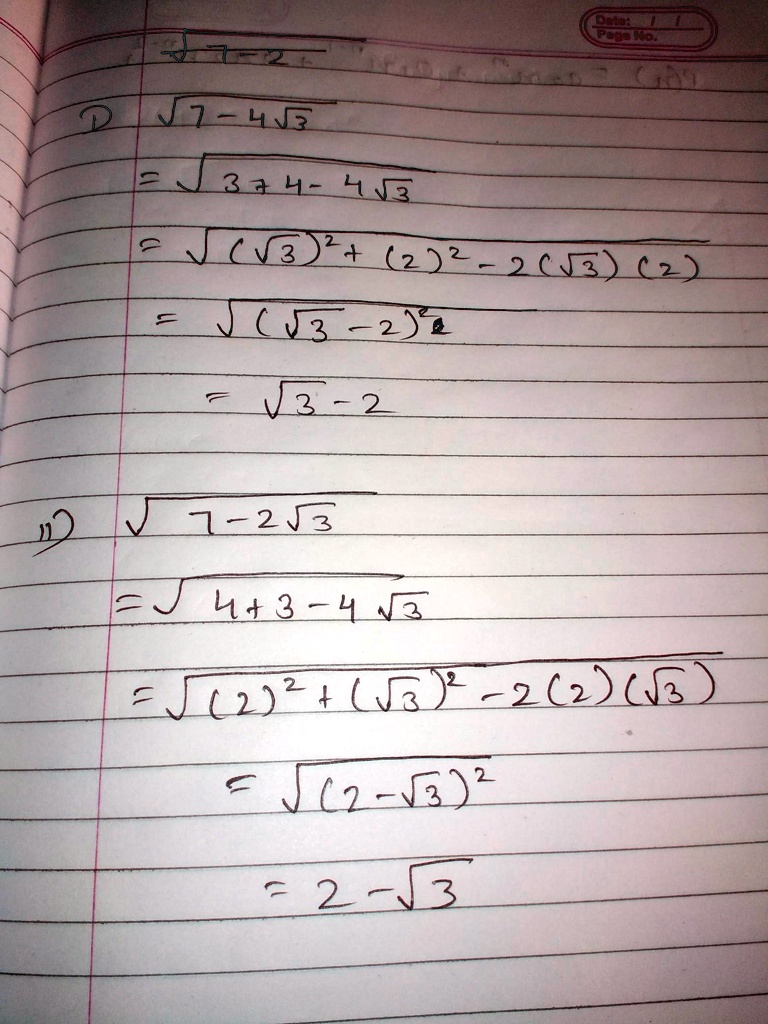 Date: / /
Page No.
√7-2
I) √7-4√3
= √3+4-4√3
= √(√3)²+(2)²-2(√3)(2)
= √(√3-2)²
= √3-2
II) √7-2√3
= √4+3-4√3
= √(2)²+(√3)²-2(2)(√3)
= √(2-√3)²
= 2-√3